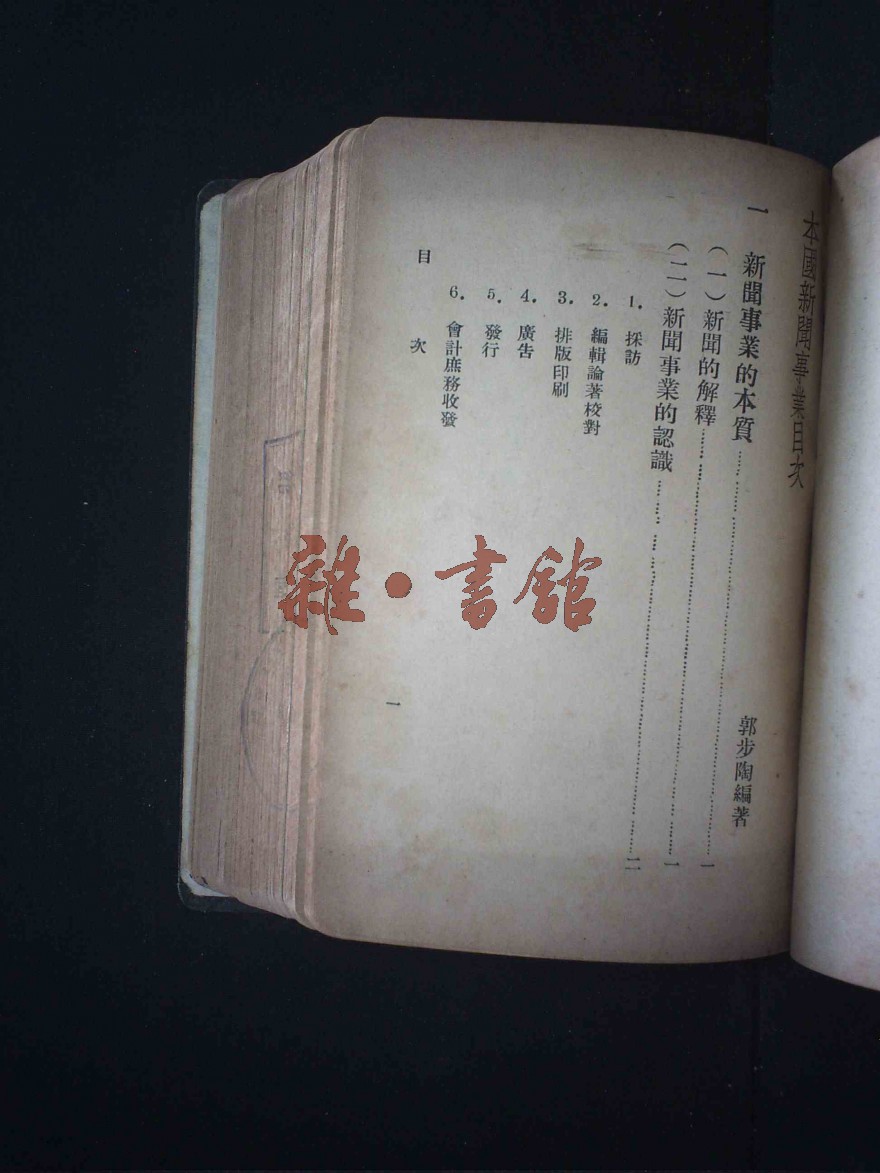 本國新聞事業目次
郭步陶編著
一 新聞事業的本質……一
（一）新聞的解釋……一
（二）新聞事業的認識……二
1. 採訪
2. 編輯論著校對
3. 排版印刷
4. 廣告
5. 發行
6. 會計庶務收發
目次
一
雜·書館